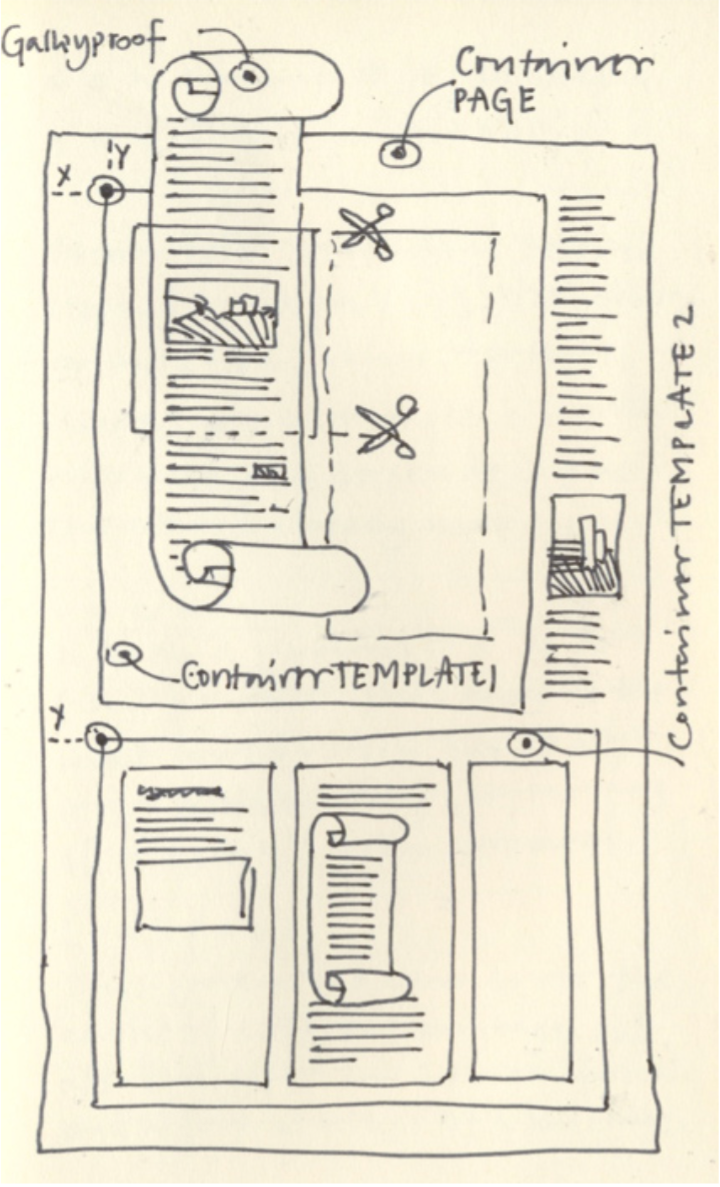 Galleyproof
Container
PAGE
Y
X
Container TEMPLATE 2
Container TEMPLATE 1
X